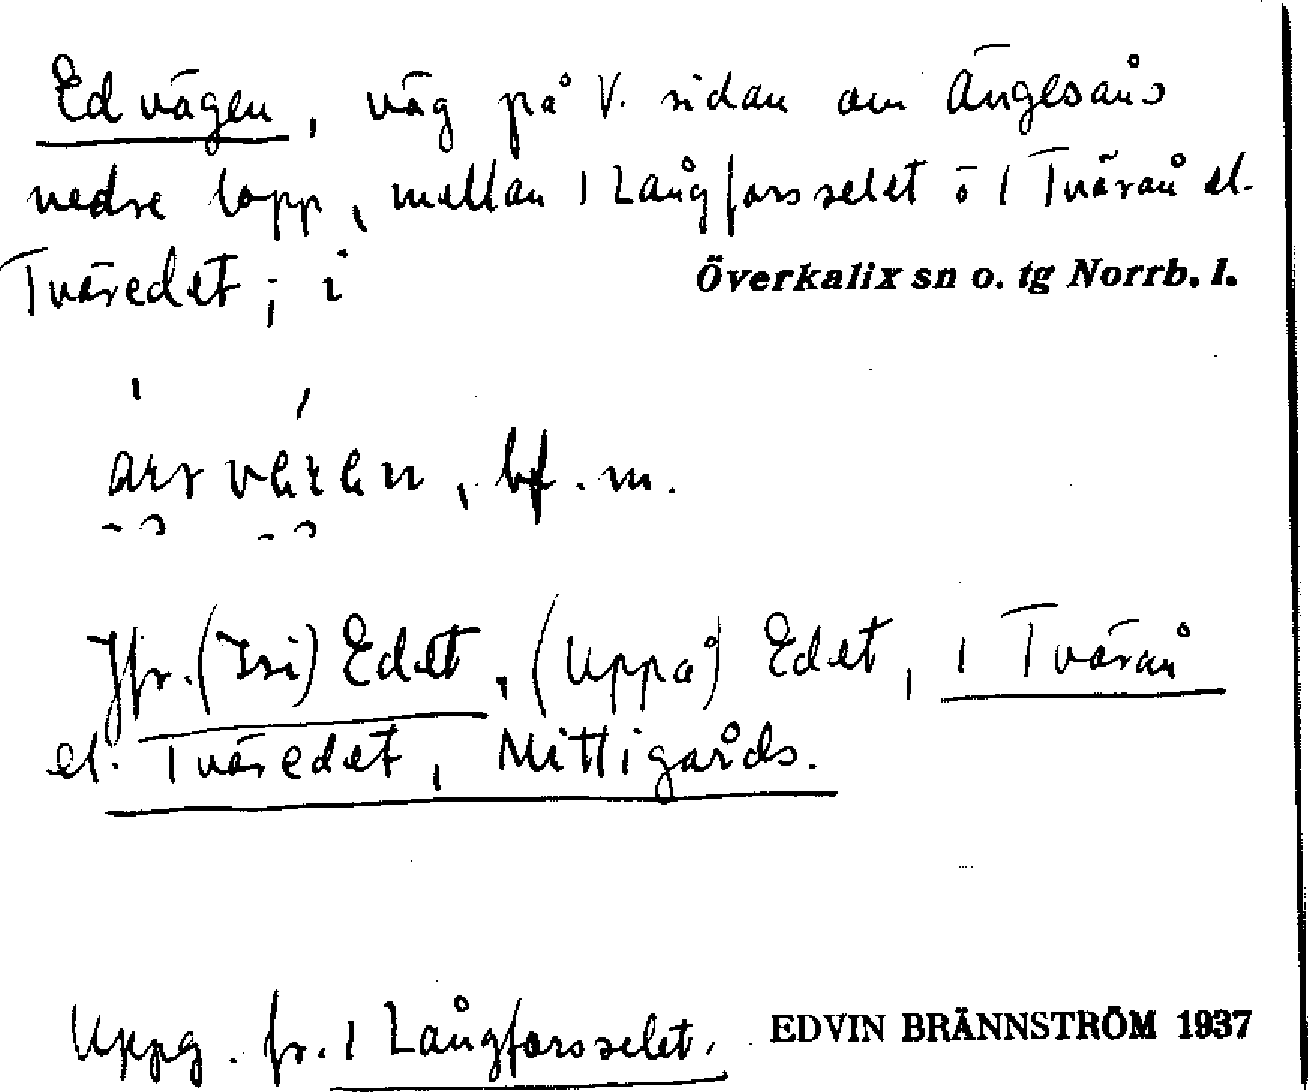 Edvägen, väg på V. sidan om Ängesåns
nedre lopp, mellan 1 Långforsselet o 1 Tvärån el.
Tväredet; i Överkalix sn o. tg Norrb. l.
bf. m.
Jfr. (Isi) Edet, (Uppå) Edet, 1 Tvärån
el. Tväredet, Mittigårds.
Uppg. fr. 1 Långforsselet. EDVIN BRÄNNSTRÖM 1937